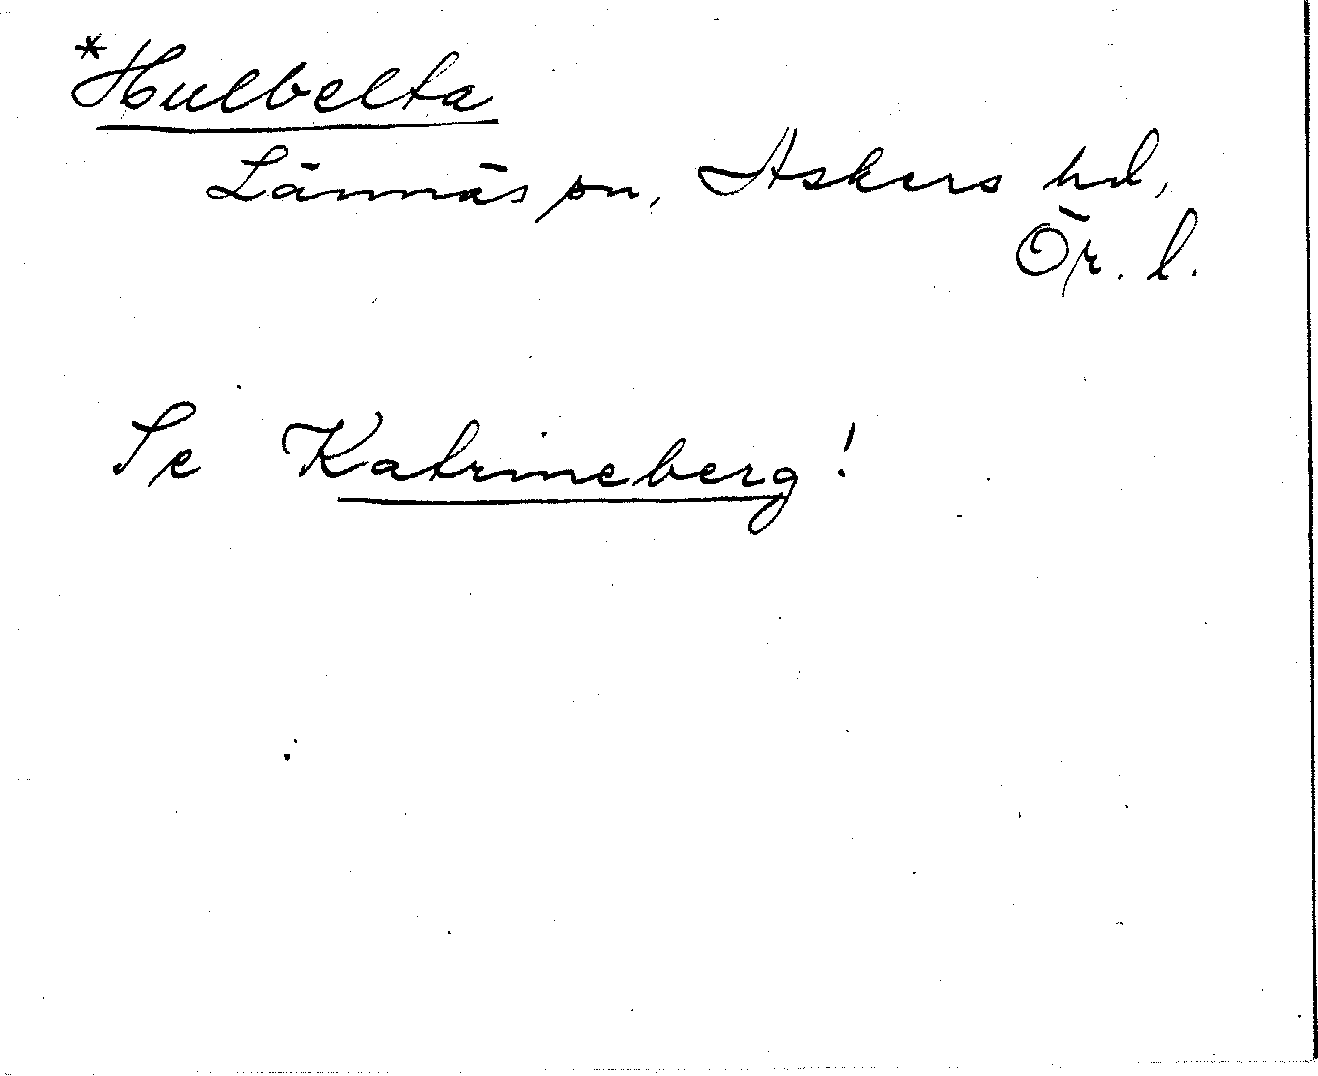 *Hulbelta
Lännäs sn, Askers hd,
Ör. l.
Se Katrineberg!